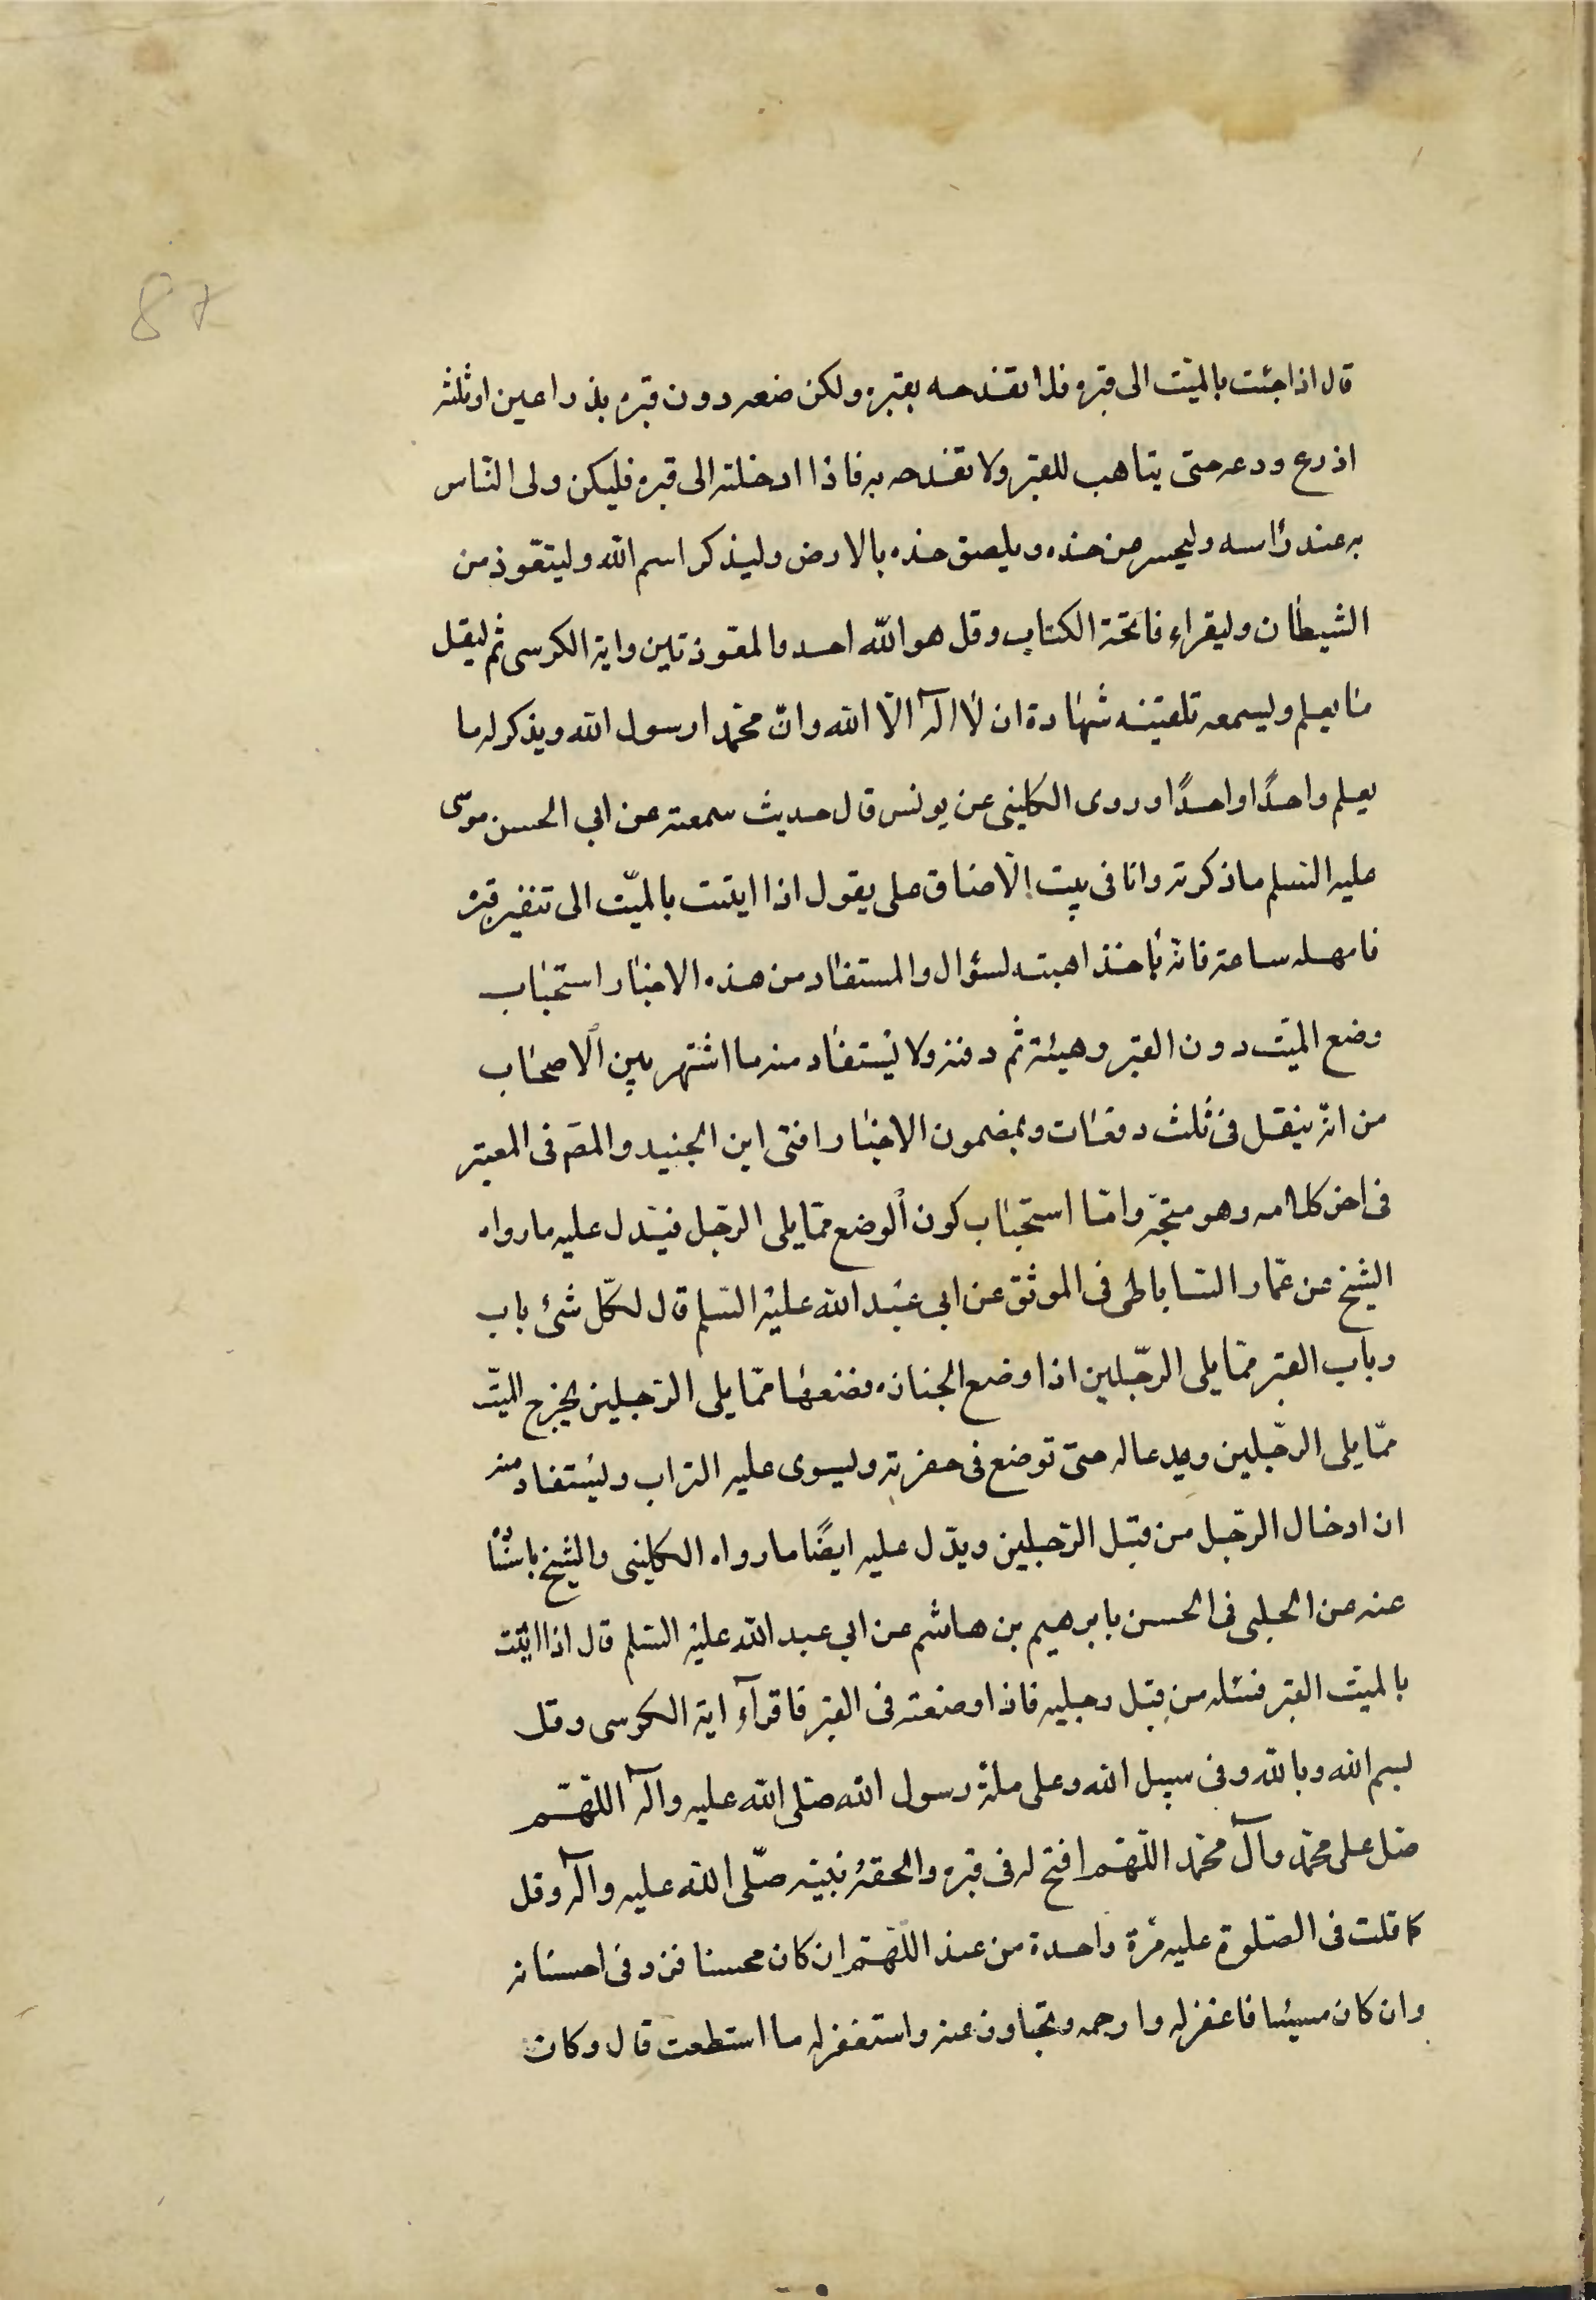 87
قال اذا جئت بالميّت الى قبره فلا تفدحه بقبره ولكن ضعه دون قبره بذراعين او ثلثه
اذرع ودعه حتى يتاهب للقبر ولا تفدحه به فاذا ادخلته الى قبره فليكن ولى النّاس
به عند رأسه وليحسر من خده ويلصق خده بالارض وليذكر اسم الله وليتعّوذ من
الشيطان وليقراء فاتحة الكتاب وقل هو الله احد والمعوذتين واية الكرسى ثم ليقل
ما يعلم وليسمعه تلقينه شهادة ان لا اله الّا الله وانّ محمّدا رسول الله ويذكر له ما
يعلم واحدًا واحدًا وروى الكلينى عن يونس قال حديث سمعته عن ابى الحسن موسى
عليه السلم ما ذكرته وانا فى بيت الّا ضاق على يقول اذا اتيت بالميّت الى شفير قبره
فامهله ساعة فانّه يأخذ اهبته لسؤال والمستفاد من هذه الاخبار استحباب
وضع الميّت دون القبر وهيئة ثم دفنه ولا يستفاد منه ما اشتهر بين الاصحاب
من انّه ينقل فى ثلث دفعات وبمضمون الاخبار افتى ابن الجنيد والمصّ فى المعتبر
فى اخر كلامه وهو متجّه وامّا استحباب كون الوضع ممّا يلى الرّجل فيدل عليه ما رواه
الشيخ عن عمّار السّاباطى فى الموثق عن ابى عبد الله عليه السّلم قال لكلّ شئ باب
وباب القبر ممّا يلى الرّجلين اذا وضع الجنازه فضعها ممّا يلى الرّجلين يخرج الميّت
ممّا يلى الرّجلين ويدعا له حتى توضع فى حفرته ويسوى عليه التراب ويستفاد منه
ان ادخال الرّجل من قبل الرّجلين ويدّل عليه ايضًا ما رواه الكلينى والشيخ باسنا
عنه عن الحلبى فى الحسن بابرهيم بن هاشم عن ابى عبد الله عليه السّلم قال اذا اتيت
بالميّت القبر فسّله من قبل رجليه فاذا وضعته فى القبر فاقرآء اية الكرسى وقل
بسم الله وبالله وفى سبيل الله وعلى ملة رسول الله صّلى الله عليه وآله اللّهّم
صّل على محمّد وآل محمّد اللّهّم افتح له فى قبره والحقهُ بنبيّه صلّى الله عليه وآله وقل
كما قلت فى الصّلوة عليه مرّة واحدة من عند اللّهّم ان كان محسنا فزد فى احسانه
وان كان مسيئا فاغفر له وارحمه وتجاوز عنه واستغفر له ما استطعت قال وكان